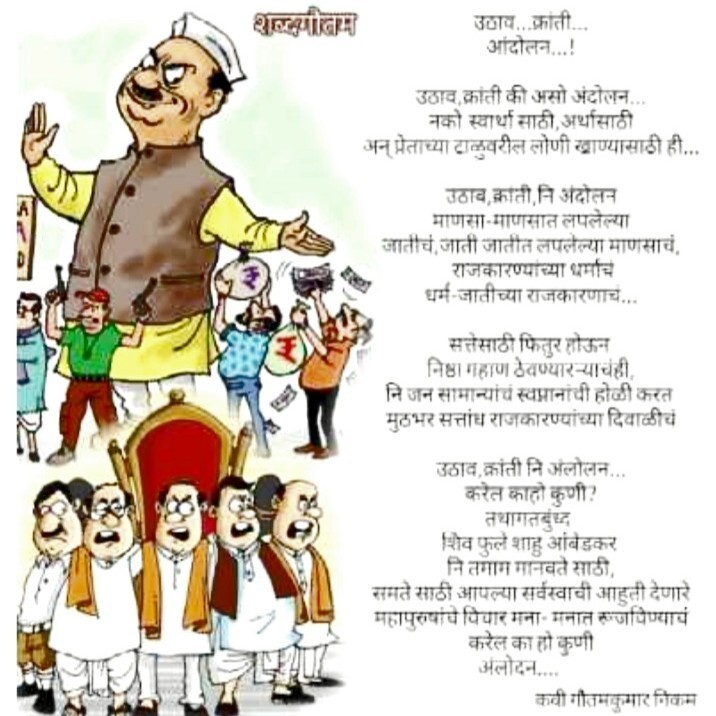 शब्दगौतम
उठाव...क्रांती...
आंदोलन...!
उठाव,क्रांती की असो अंदोलन...
नको स्वार्था साठी,अर्थासाठी
अन् प्रेताच्या टाळुवरील लोणी खाण्यासाठी ही...
उठाब,क्रांती,नि अंदोलन
माणसा-माणसात लपलेल्या
जातीचं,जाती जातीत लपलेल्या माणसाचं,
राजकारण्यांच्या धर्माचं
धर्म-जातीच्या राजकारणाचं...
सत्तेसाठी फितुर होऊन
निष्ठा गहाण ठेवण्यार-याचंही,
नि जन सामान्यांचं स्वप्नानांची होळी करत
मुठभर सत्तांध राजकारण्यांच्या दिवाळीचं
उठाव,क्रांती नि अंलोलन...
करेल काहो कुणी?
तथागतबुंध्द
शिव फुले शाहु आंबेडकर
नि तमाम मानवते साठी,
समते साठी आपल्या सर्वस्वाची आहुती देणारे
महापुरुषांचे विचार मना- मनात रूजविण्याचं
करेल का हो कुणी
अंलोदन....
कवी गौतमकुमार निकम